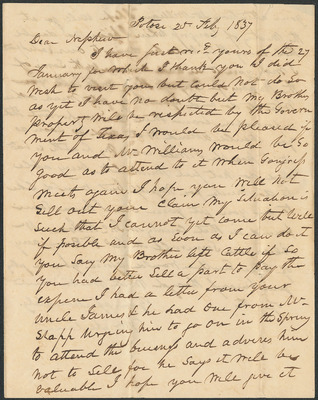 Potosi 25 Feb, 1837
Dear Nephew
I have just rec.d yours of the 27
January for which I thank you I did
wish to visit you but could not do so
as yet I have no doubt but my Brothers
property will be respected by the Govern
ment of Texas I would be pleased if
you and Mr Williams would be so
good as to attend to it when Congress
meets again I hope you will not
sell out your Claim My Situation is
such that I cannot yet come but will
if posible and as soon as I can do it
you say My Brother left Cattle if so
you had better sell a part to pay the
expence I had a letter from your
Uncle James & he had one from Mr
Urging him to go on in the Spring
to attend the business and advises him
not to sell for he says it will be
valuable I hope you will give it